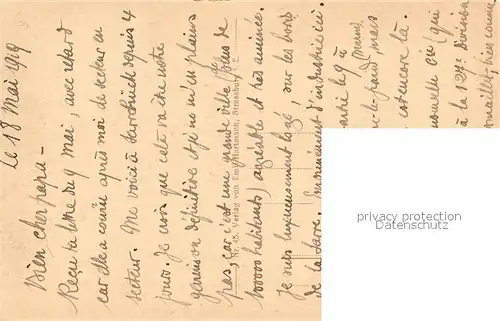 Le 18 Mai 1919
Bien cher papa -
Reçu ta lettre du 9 mai, avec retard
car elle a couru après moi de secteur en
secteur. Me voici à Sarrebrück depuis 4
jours. Je crois que cette va être notre
garnison définitive et je ne m'en plains
pas, car c'est une grande ville (plus de
100000 habitants) agréable et très animée.
Je suis luxueusement logé, sur les bords
de la Sarre. Énormément d'industrie ici.
arrivé le 9 à
(Marne)
le-Grand, mais
est encore là.
nouvelle
(qui
à la 127e Division
Nr. 45. Verlag von Emil Hartmann, Strassburg i. E.
privacy protection
Datenschutz